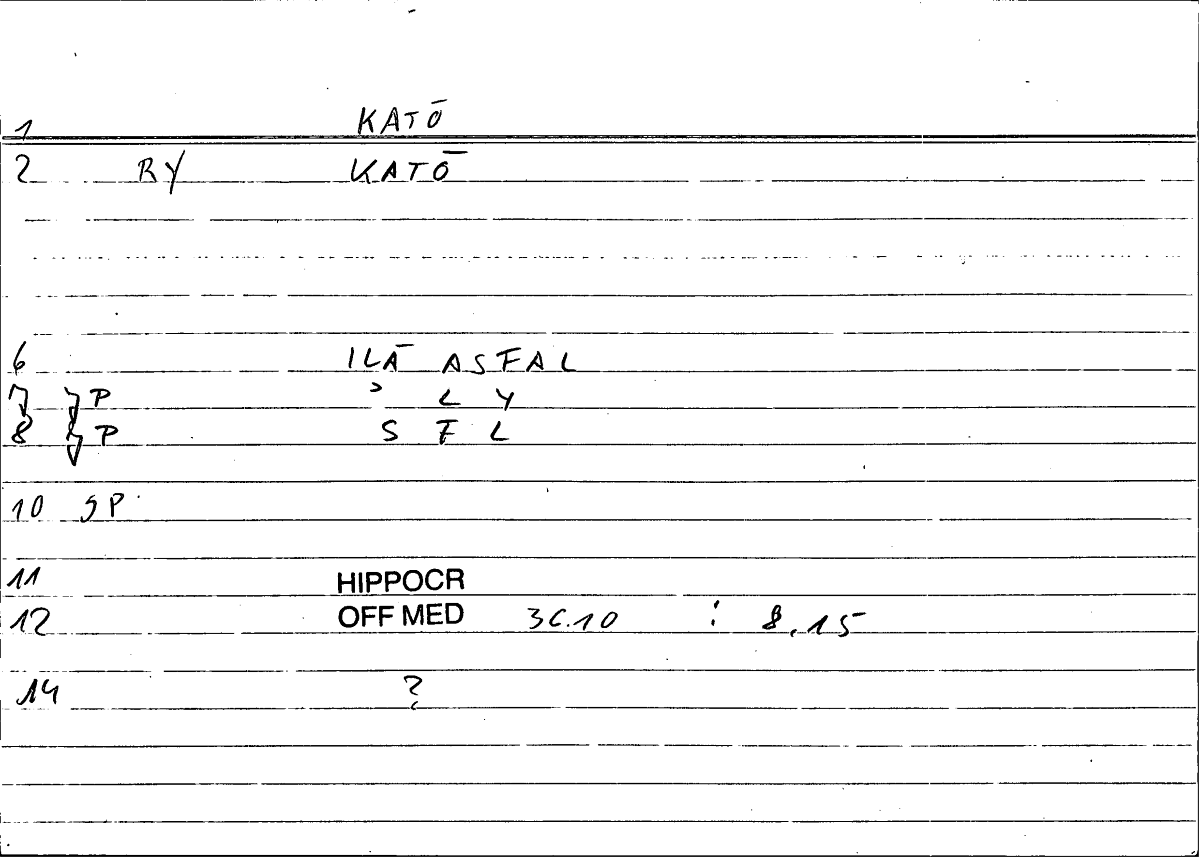 1 KATŌ
2 RY KATŌ
6 ILĀ ASFAL
7 P ʾ L Y
8 P S F L
10 SP
11 HIPPOCR
12 OFF MED 3C.10 : 8.15
14 ?